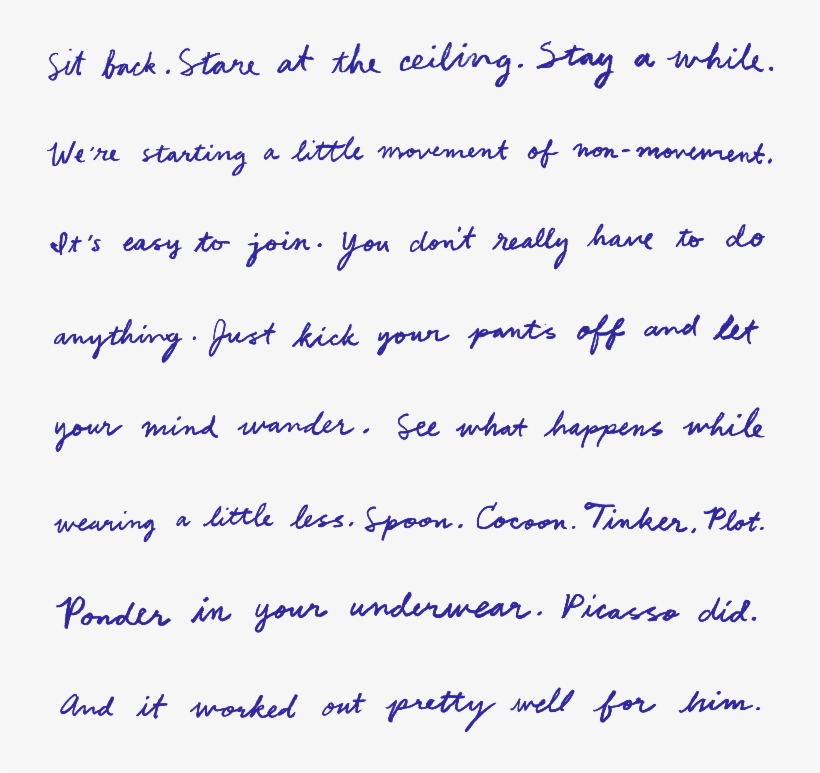 Sit back. Stare at the ceiling. Stay a while.
We're starting a little movement of non-movement.
It's easy to join. You don't really have to do
anything. Just kick your pants off and let
your mind wander. See what happens while
wearing a little less. Spoon. Cocoon. Tinker. Plot.
Ponder in your underwear. Picasso did.
And it worked out pretty well for him.